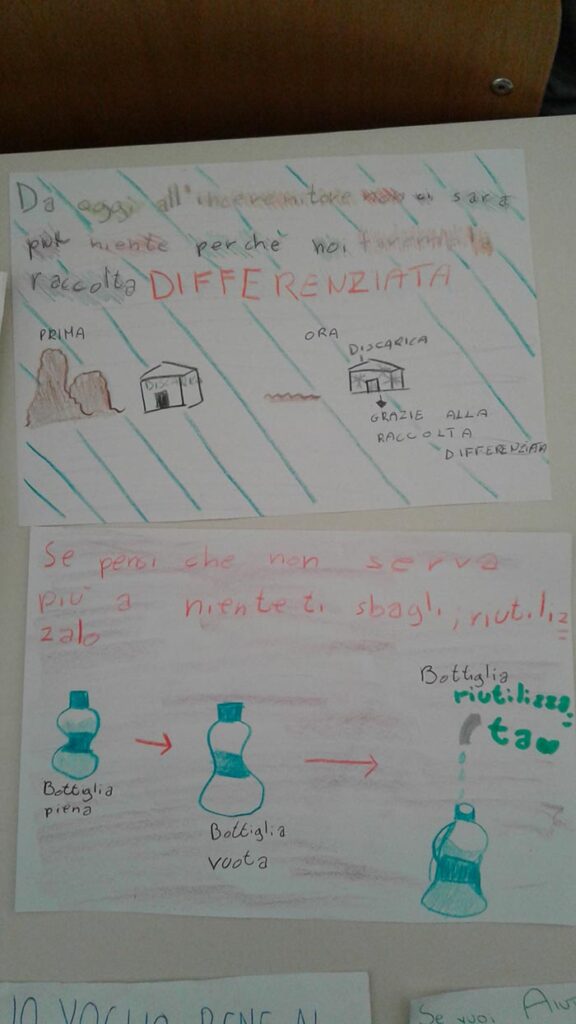 Da oggi all'inceneritore non ci sara
più niente perchè noi faremo la
raccolta DIFFERENZIATA
PRIMA
ORA
DISCARICA
DISCARICA
GRAZIE ALLA
RACCOLTA
DIFFERENZIATA
Se perci che non serva
più a niente ti sbagli, riutiliz
zalo
Bottiglia
riutilizza
ta
Bottiglia
piena
Bottiglia
vuota
IO VOGLIO BENE AL
Se vuoi